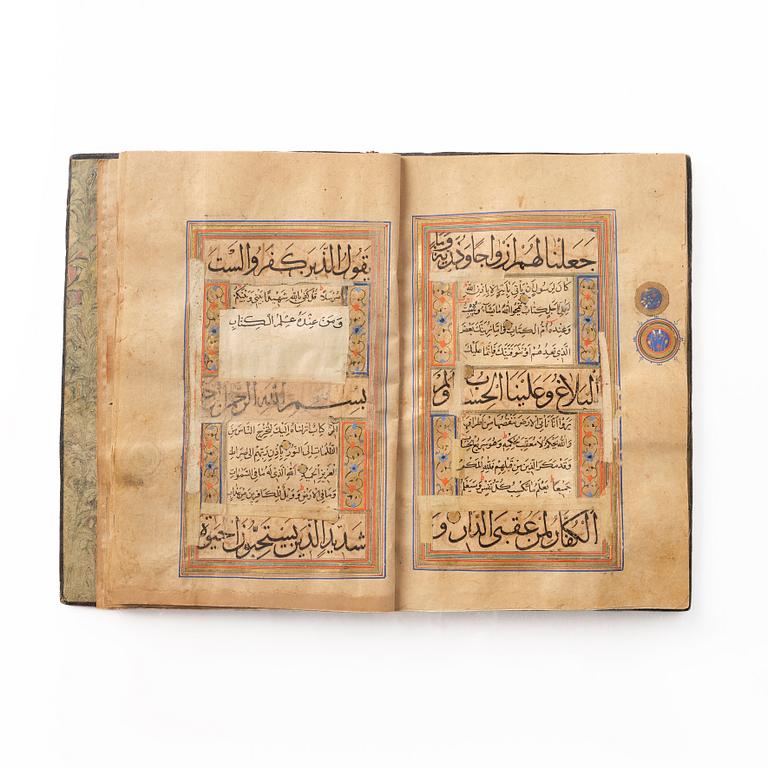 جعلنا لهم ازواجا وذرية وما
كان لرسول ان ياتي باية الا باذن الله
لكل اجل كتاب يمحوا الله ما يشاء ويثبت
وعنده ام الكتاب وان ما نرينك بعض
الذي نعدهم او نتوفينك فانما عليك
البلاغ وعلينا الحساب اولم
يروا انا ناتي الارض ننقصها من اطرافها
والله يحكم لا معقب لحكمه وهو سريع الحساب
وقد مكر الذين من قبلهم فلله المكر
جميعا يعلم ما تكسب كل نفس وسيعلم
الكفار لمن عقبى الدار و
يقول الذين كفروا لست
مرسلا قل كفى بالله شهيدا بيني وبينكم
ومن عنده علم الكتاب
بسم الله الرحمن
الر كتاب انزلناه اليك لتخرج الناس من
الظلمات الى النور باذن ربهم الى صراط
العزيز الحميد الله الذي له ما في السموات
وما في الارض وويل للكافرين من عذاب
شديد الذين يستحبون الحيوة